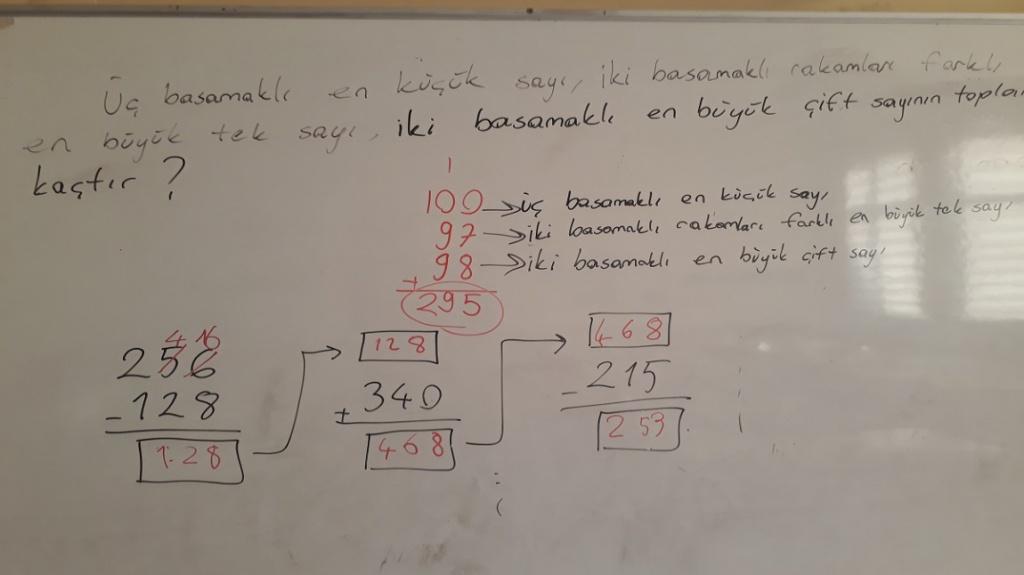 Üç basamaklı en küçük sayı, iki basamaklı rakamları farklı
en büyük tek sayı, iki basamaklı en büyük çift sayının
kaçtır ?
1
100 → üç basamaklı en küçük sayı
97 → iki basamaklı rakamları farklı en büyük tek sayı
+ 98 → iki basamaklı en büyük çift sayı
295
4 16
256
- 128
128
128
+ 340
468
468
- 215
253